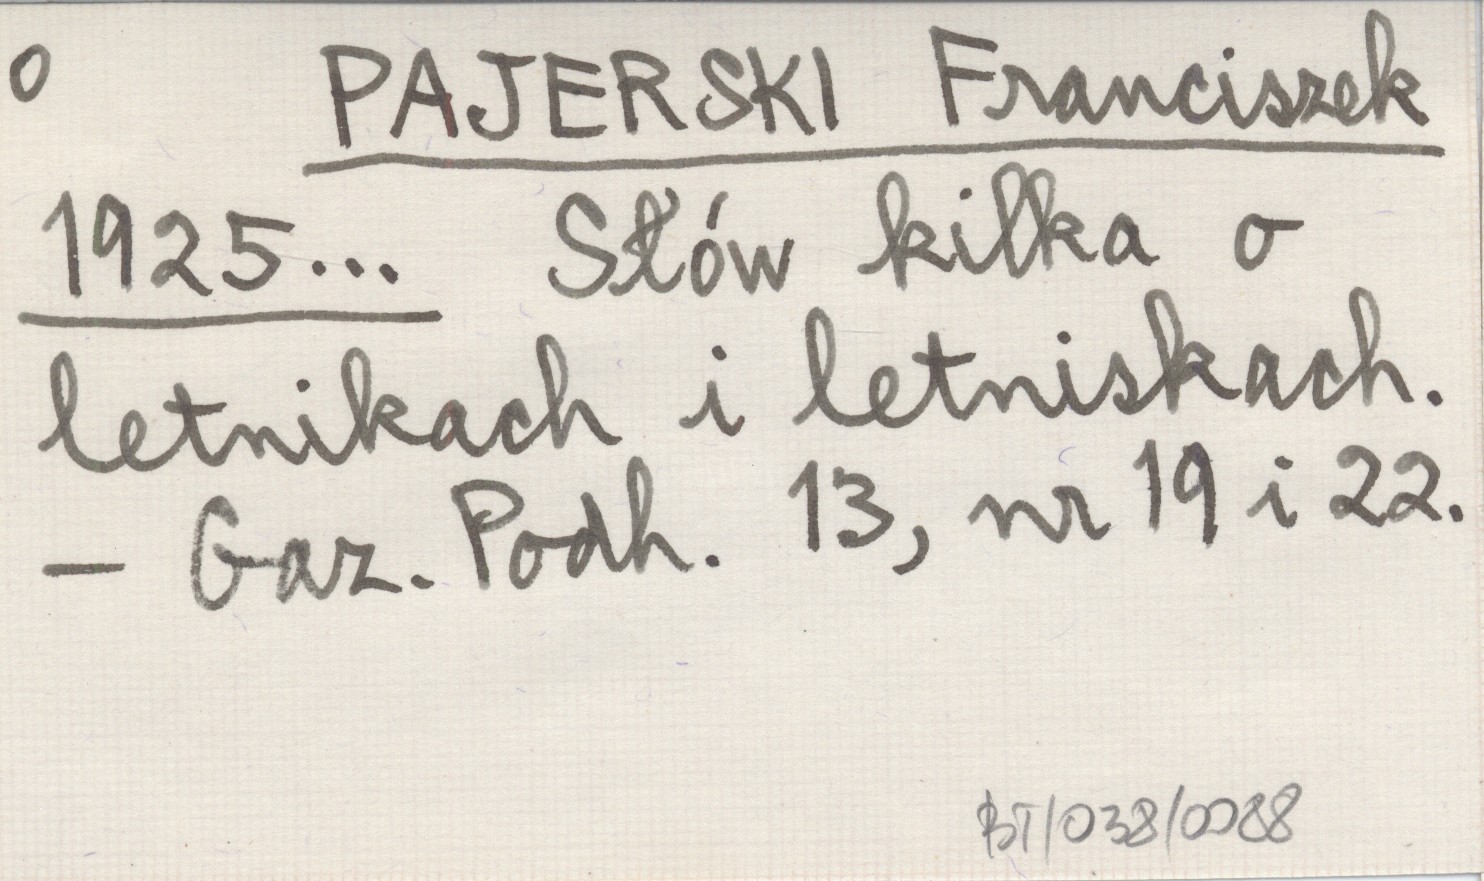 o PAJERSKI Franciszek
1925... Słów kilka o
letnikach i letniskach.
– Gaz. Podh. 13, nr 19 i 22.
BT/038/0088